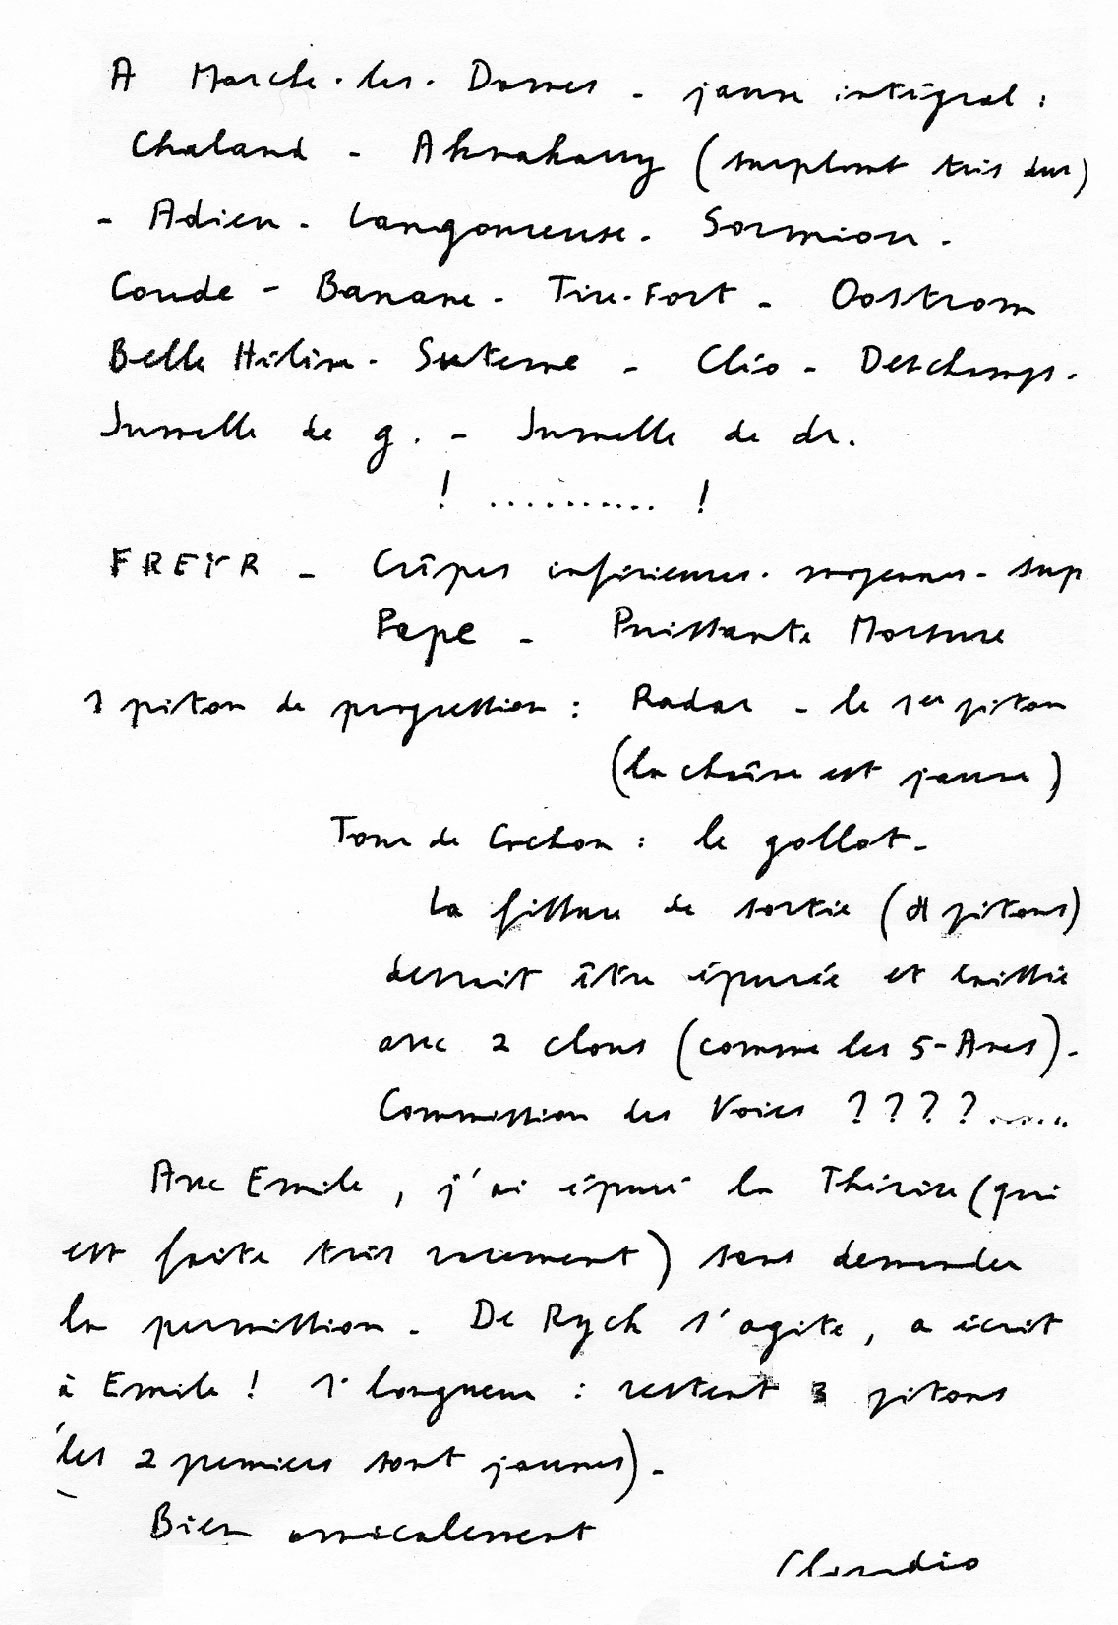 A Marche-les-Dames - jaune intégral :
Chaland - Aknakarry (surplomb très dur)
- Adieu - Langoureuse - Sormiou -
Coude - Banane - Tire-Fort - Oostrom
Belle Hélène - Suterne - Clio - Deschamps -
Jumelle de g. - Jumelle de dr.
! .......... !
FREYR - Crêpes inférieures - moyennes - sup
Pape - Puissante Morsure
1 piton de progression : Radar - le 1er piton
(la chaîne est jaune)
Tour de Crehon : le gollot -
La fissure de sortie (8 pitons)
devrait être épurée et laissée
avec 2 clous (comme les 5-Anes) -
Commission des Voies ????......
Avec Emile, j'ai épuré la Thérèse (qui
est faite très rarement) sans demander
la permission. De Rych s'agite, a écrit
à Emile ! 1° longueur : restent 3 pitons
(les 2 premiers sont jaunes) -
Bien amicalement
Claudio